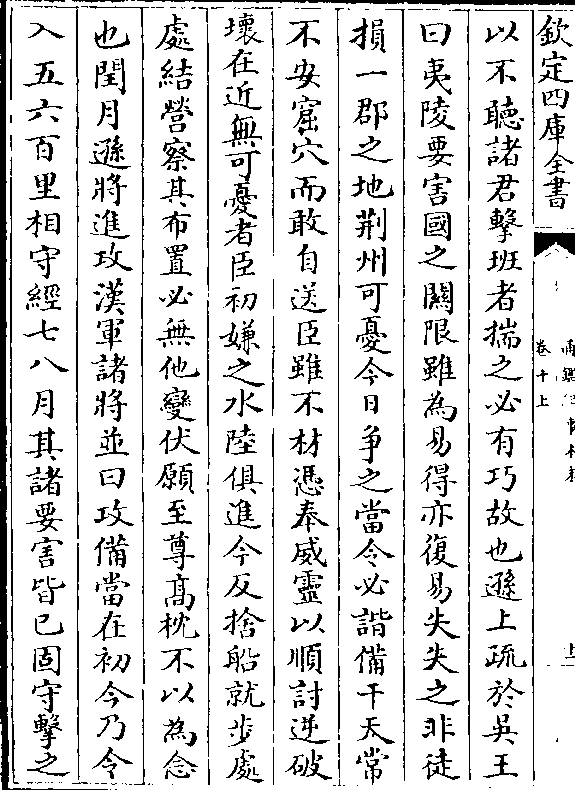 欽定四庫全書
卷十上
以不聽諸君擊班者揣之必有巧故也遜上疏於吳王
曰夷陵要害國之關限雖為易得亦復易失失之非徒
損一郡之地荆州可憂今日争之當令必諧備干天常
不安窟穴而敢自送臣雖不材憑奉威靈以順討逆破
壞在近無可憂者臣初嫌之水陸俱進今反捨船就步處
處結營察其布置必無他變伏願至尊髙枕不以為念
也閏月遜將進攻漢軍諸將並曰攻備當在初今乃令
入五六百里相守經七八月其諸要害皆已固守擊之